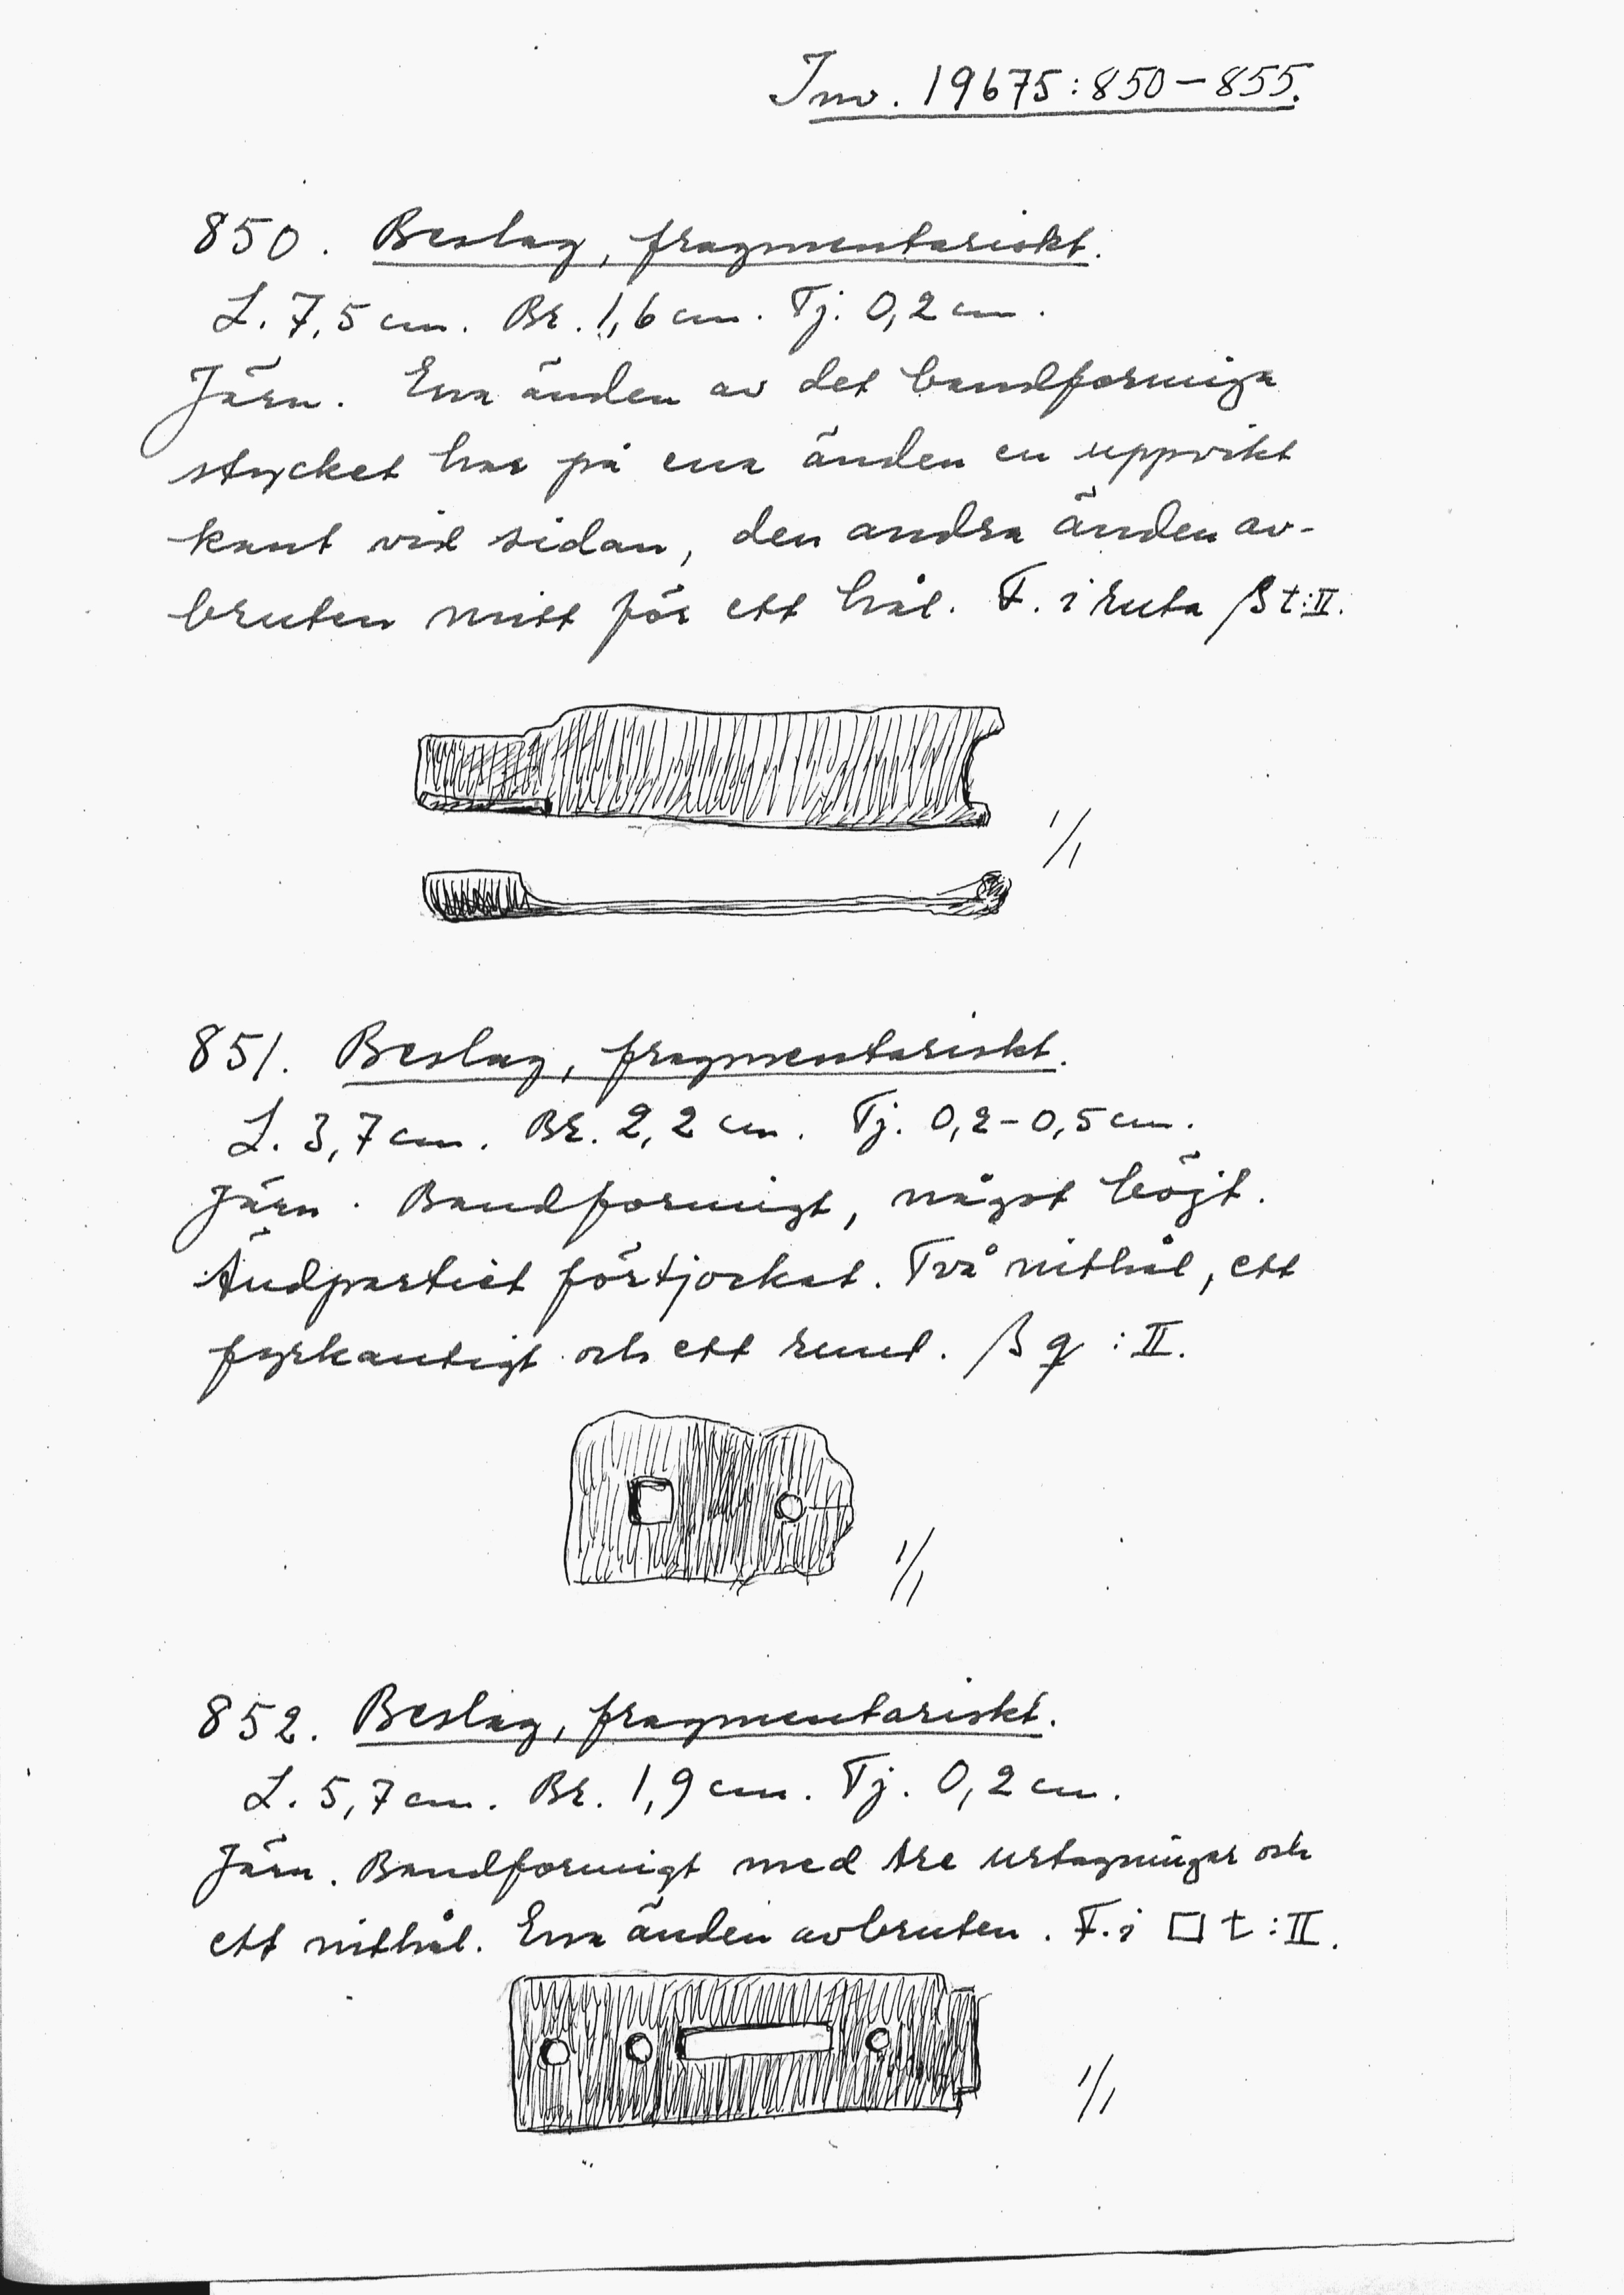 Inv. 19675:850–855.
850. Beslag, fragmentariskt.
L. 7,5 cm. Br. 1,6 cm. Tj. 0,2 cm.
Järn. Ena änden av det bandformiga
stycket har på ena änden en uppvikt
kant vid sidan, den andra änden av-
bruten mitt för ett hål. F. i ruta β t:II.
1/1
851. Beslag, fragmentariskt.
L. 3,7 cm. Br. 2,2 cm. Tj. 0,2–0,5 cm.
Järn. Bandformigt, något böjt.
Ändpartiet förtjockat. Två nithål, ett
fyrkantigt och ett runt. β q :II.
1/1
852. Beslag, fragmentariskt.
L. 5,7 cm. Br. 1,9 cm. Tj. 0,2 cm.
Järn. Bandformigt med tre urtagningar och
ett nithål. Ena änden avbruten. F. i □ t:II.
1/1